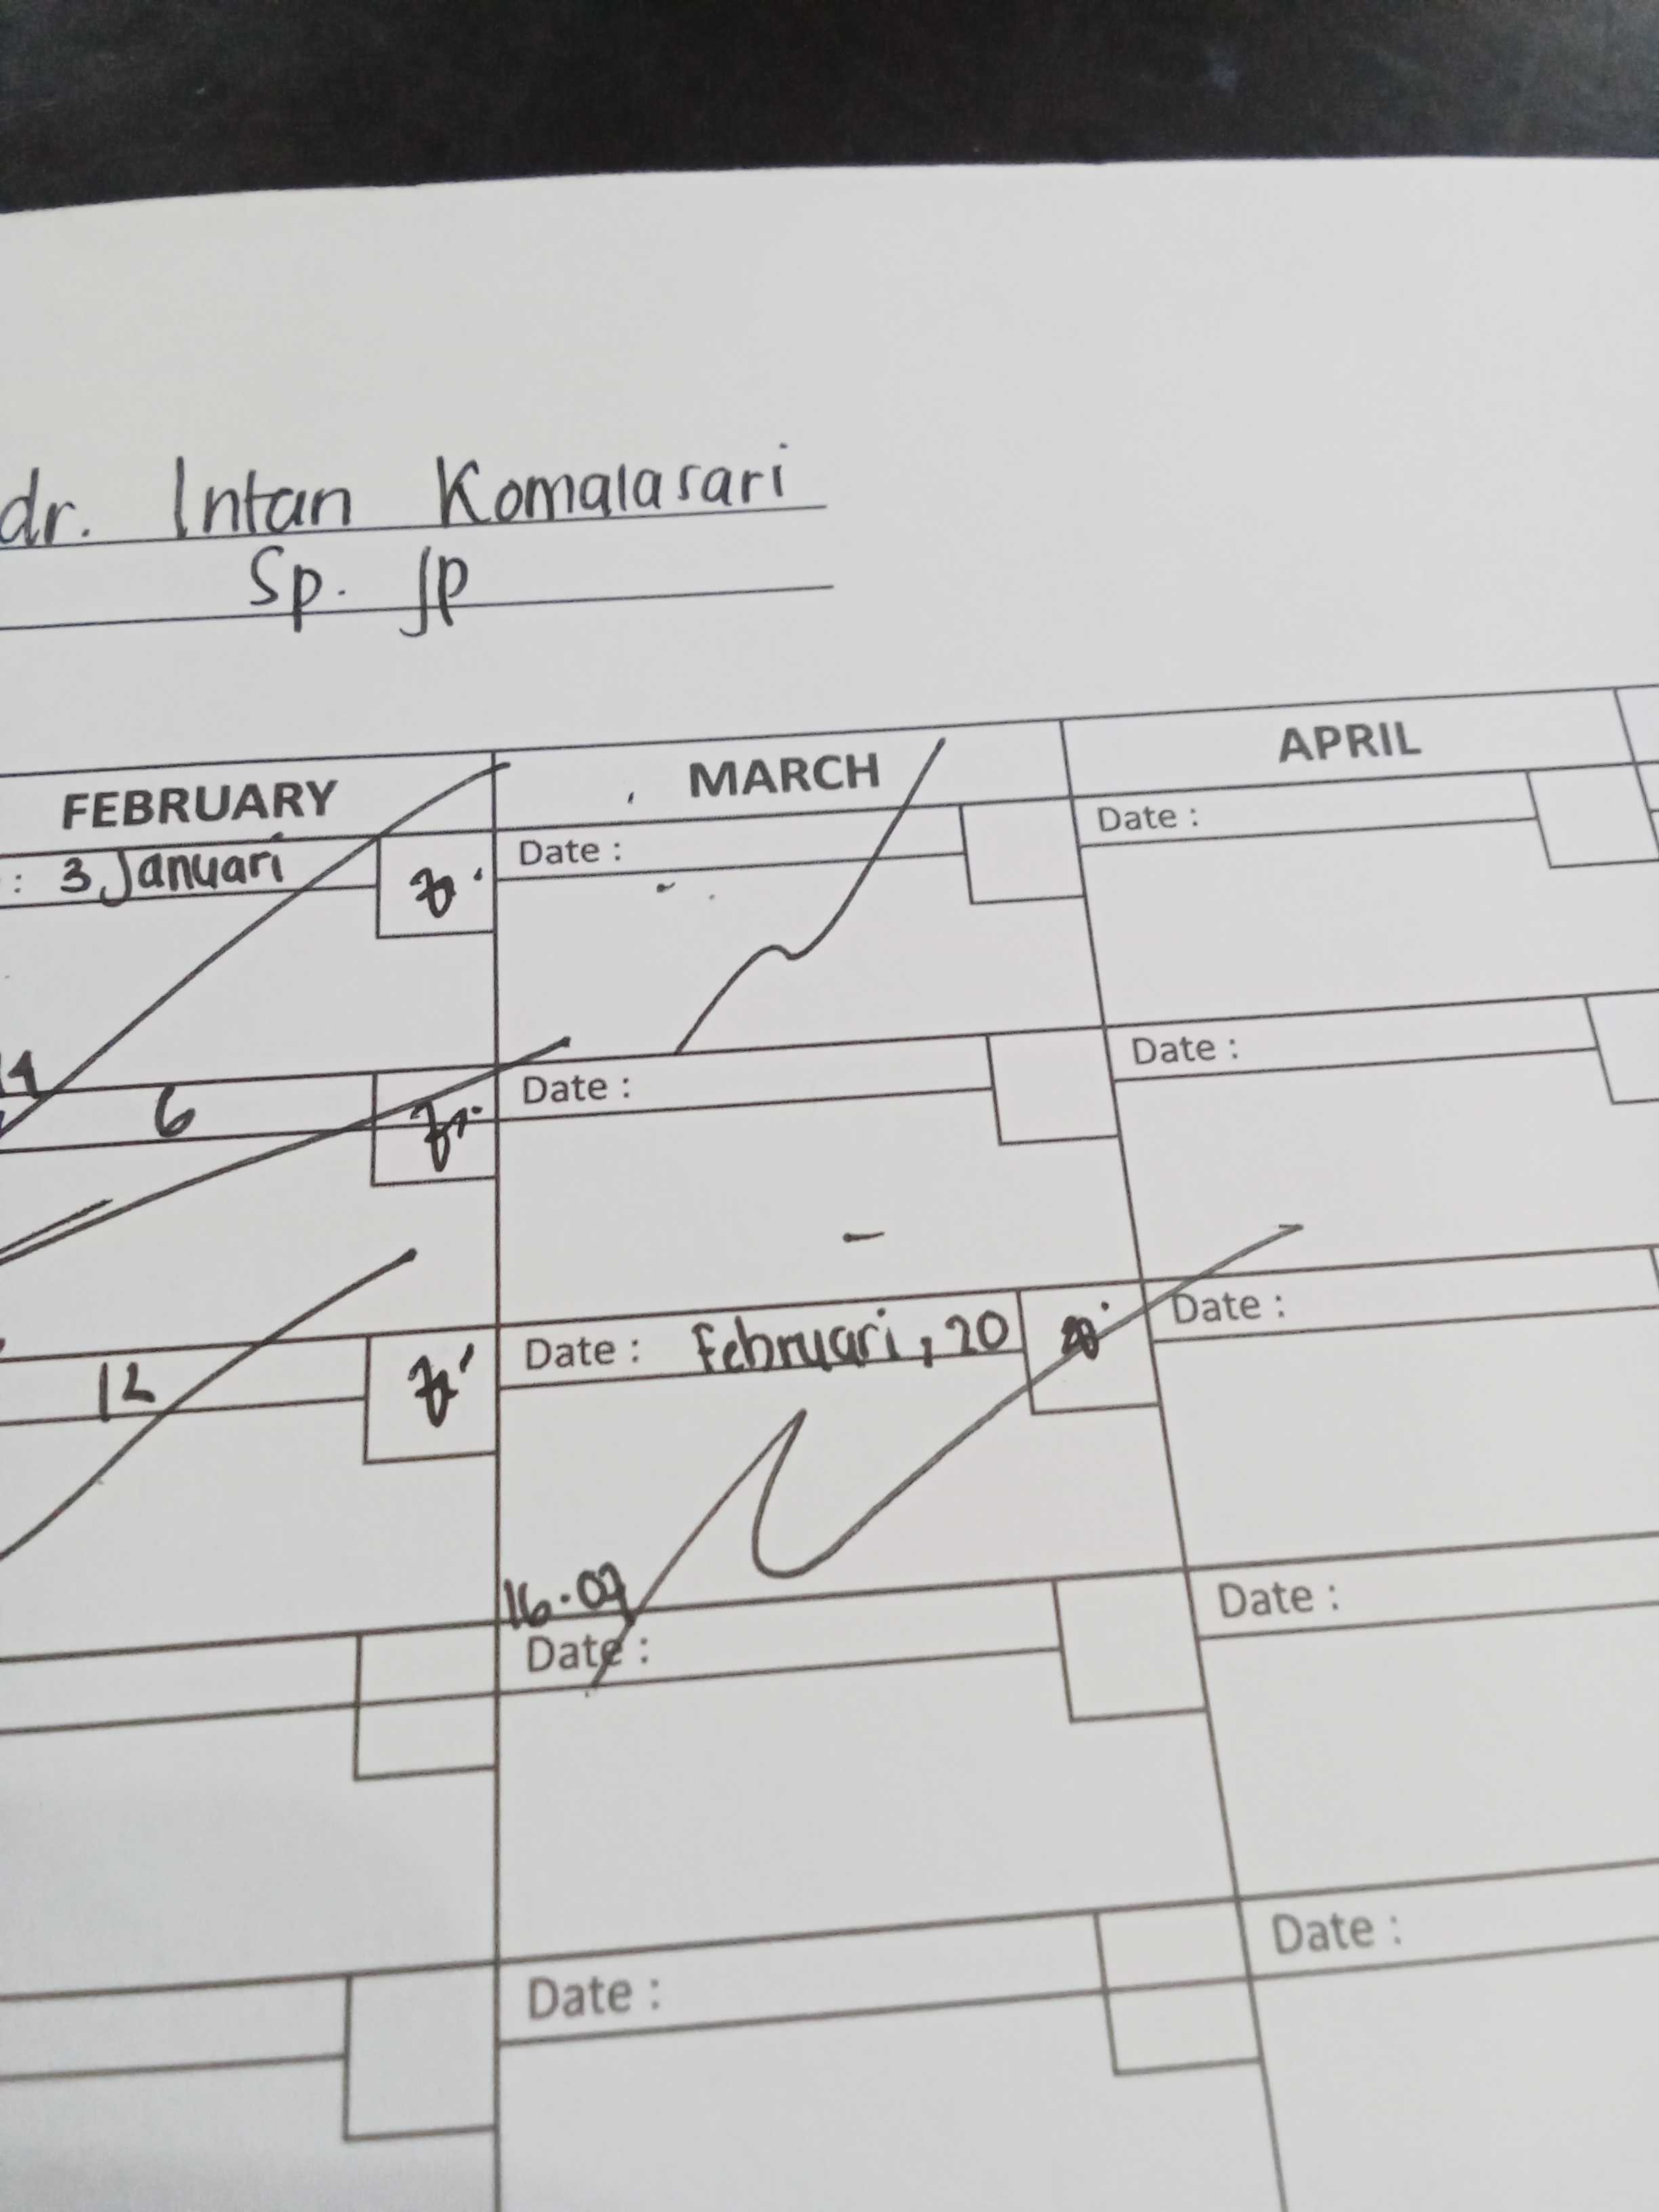 dr. Intan Komalasari
Sp. Jp
FEBRUARY MARCH APRIL
: 3 Januari Date : Date :
6 Date : Date :
12 Date : Februari, 20 Date :
16.07
Date : Date :
Date : Date :